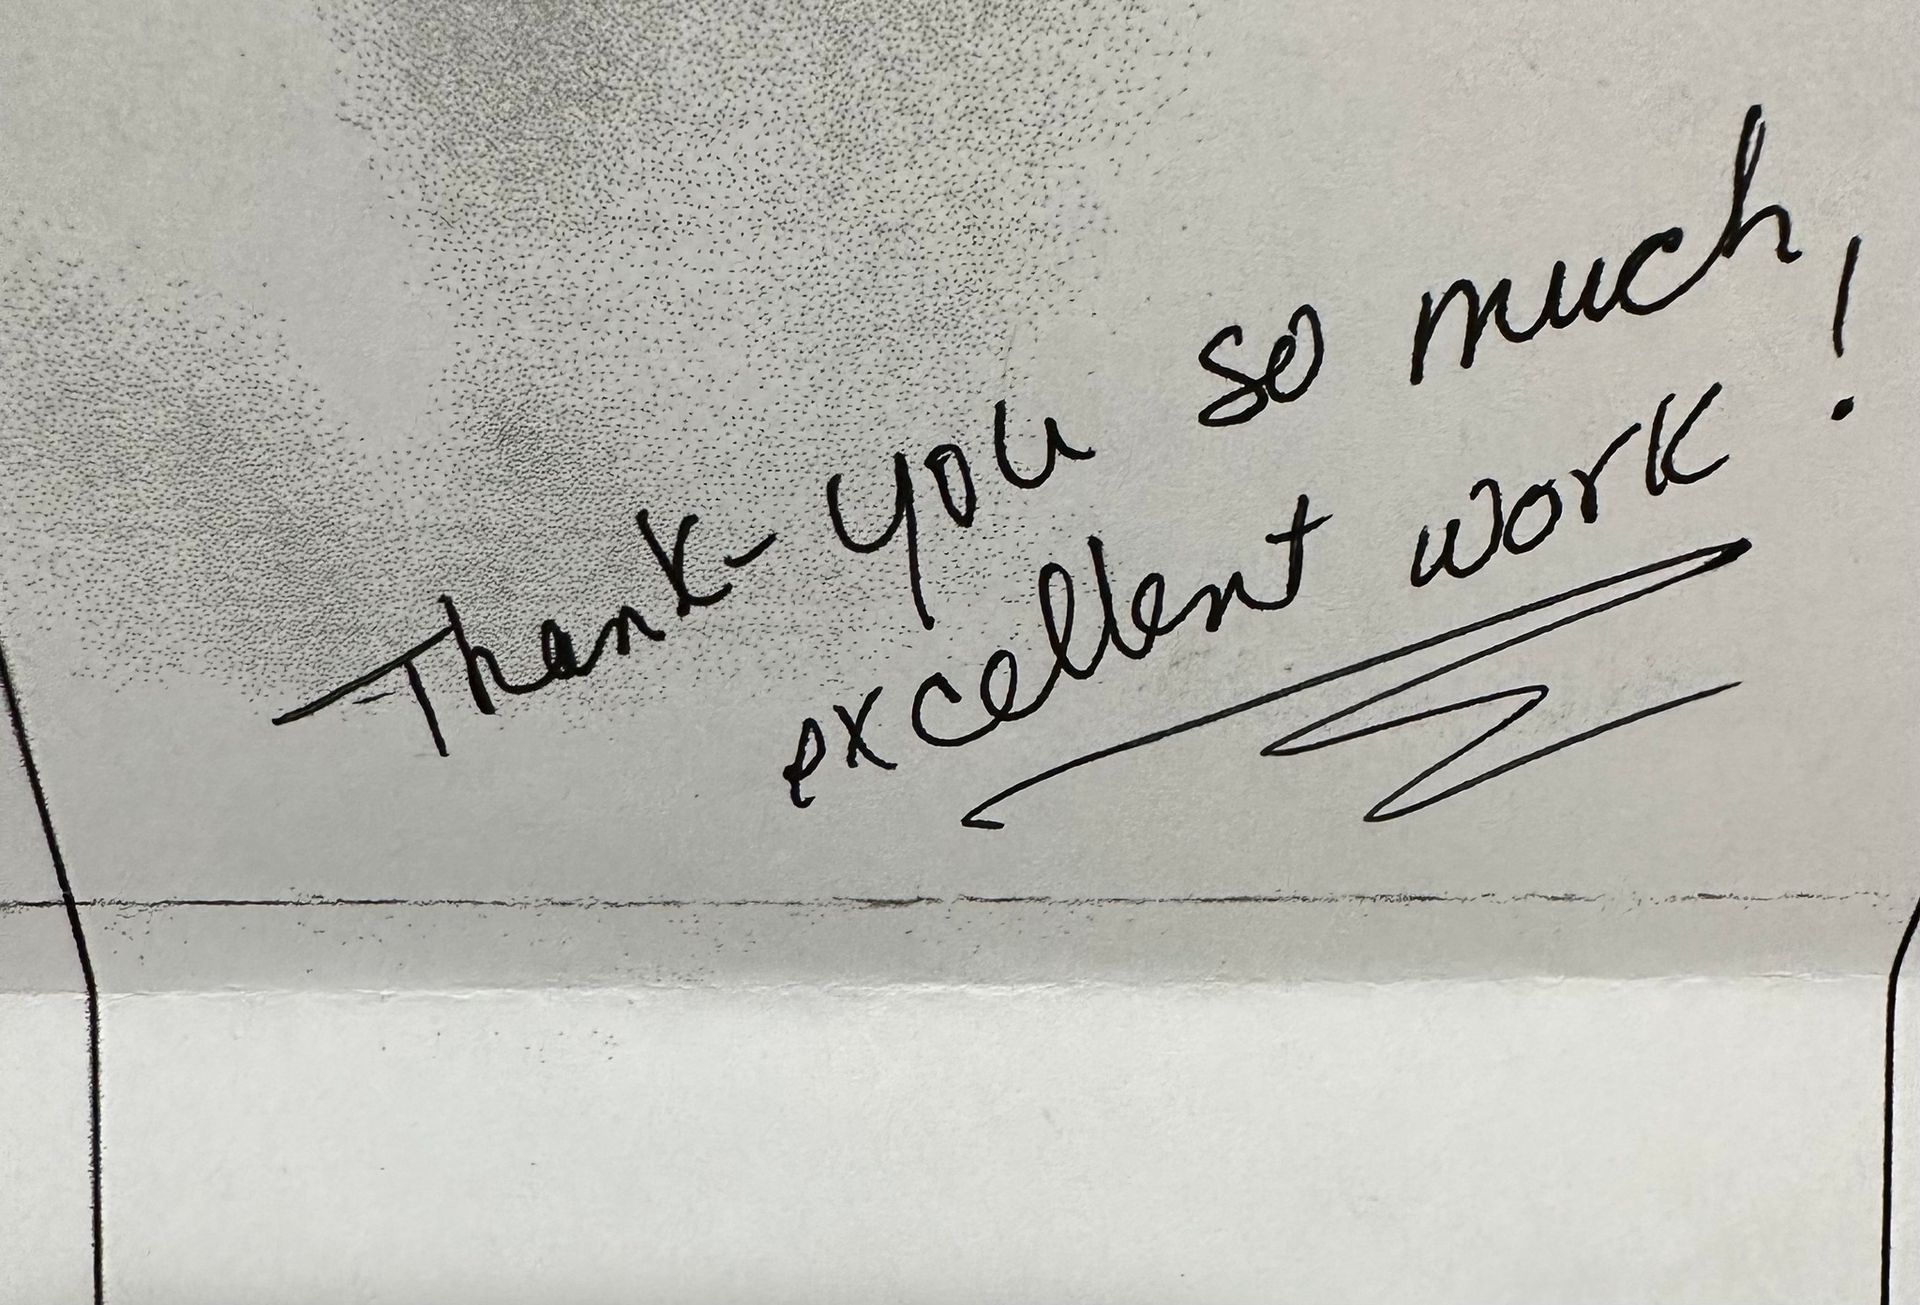 Thank-you so much,
excellent work!